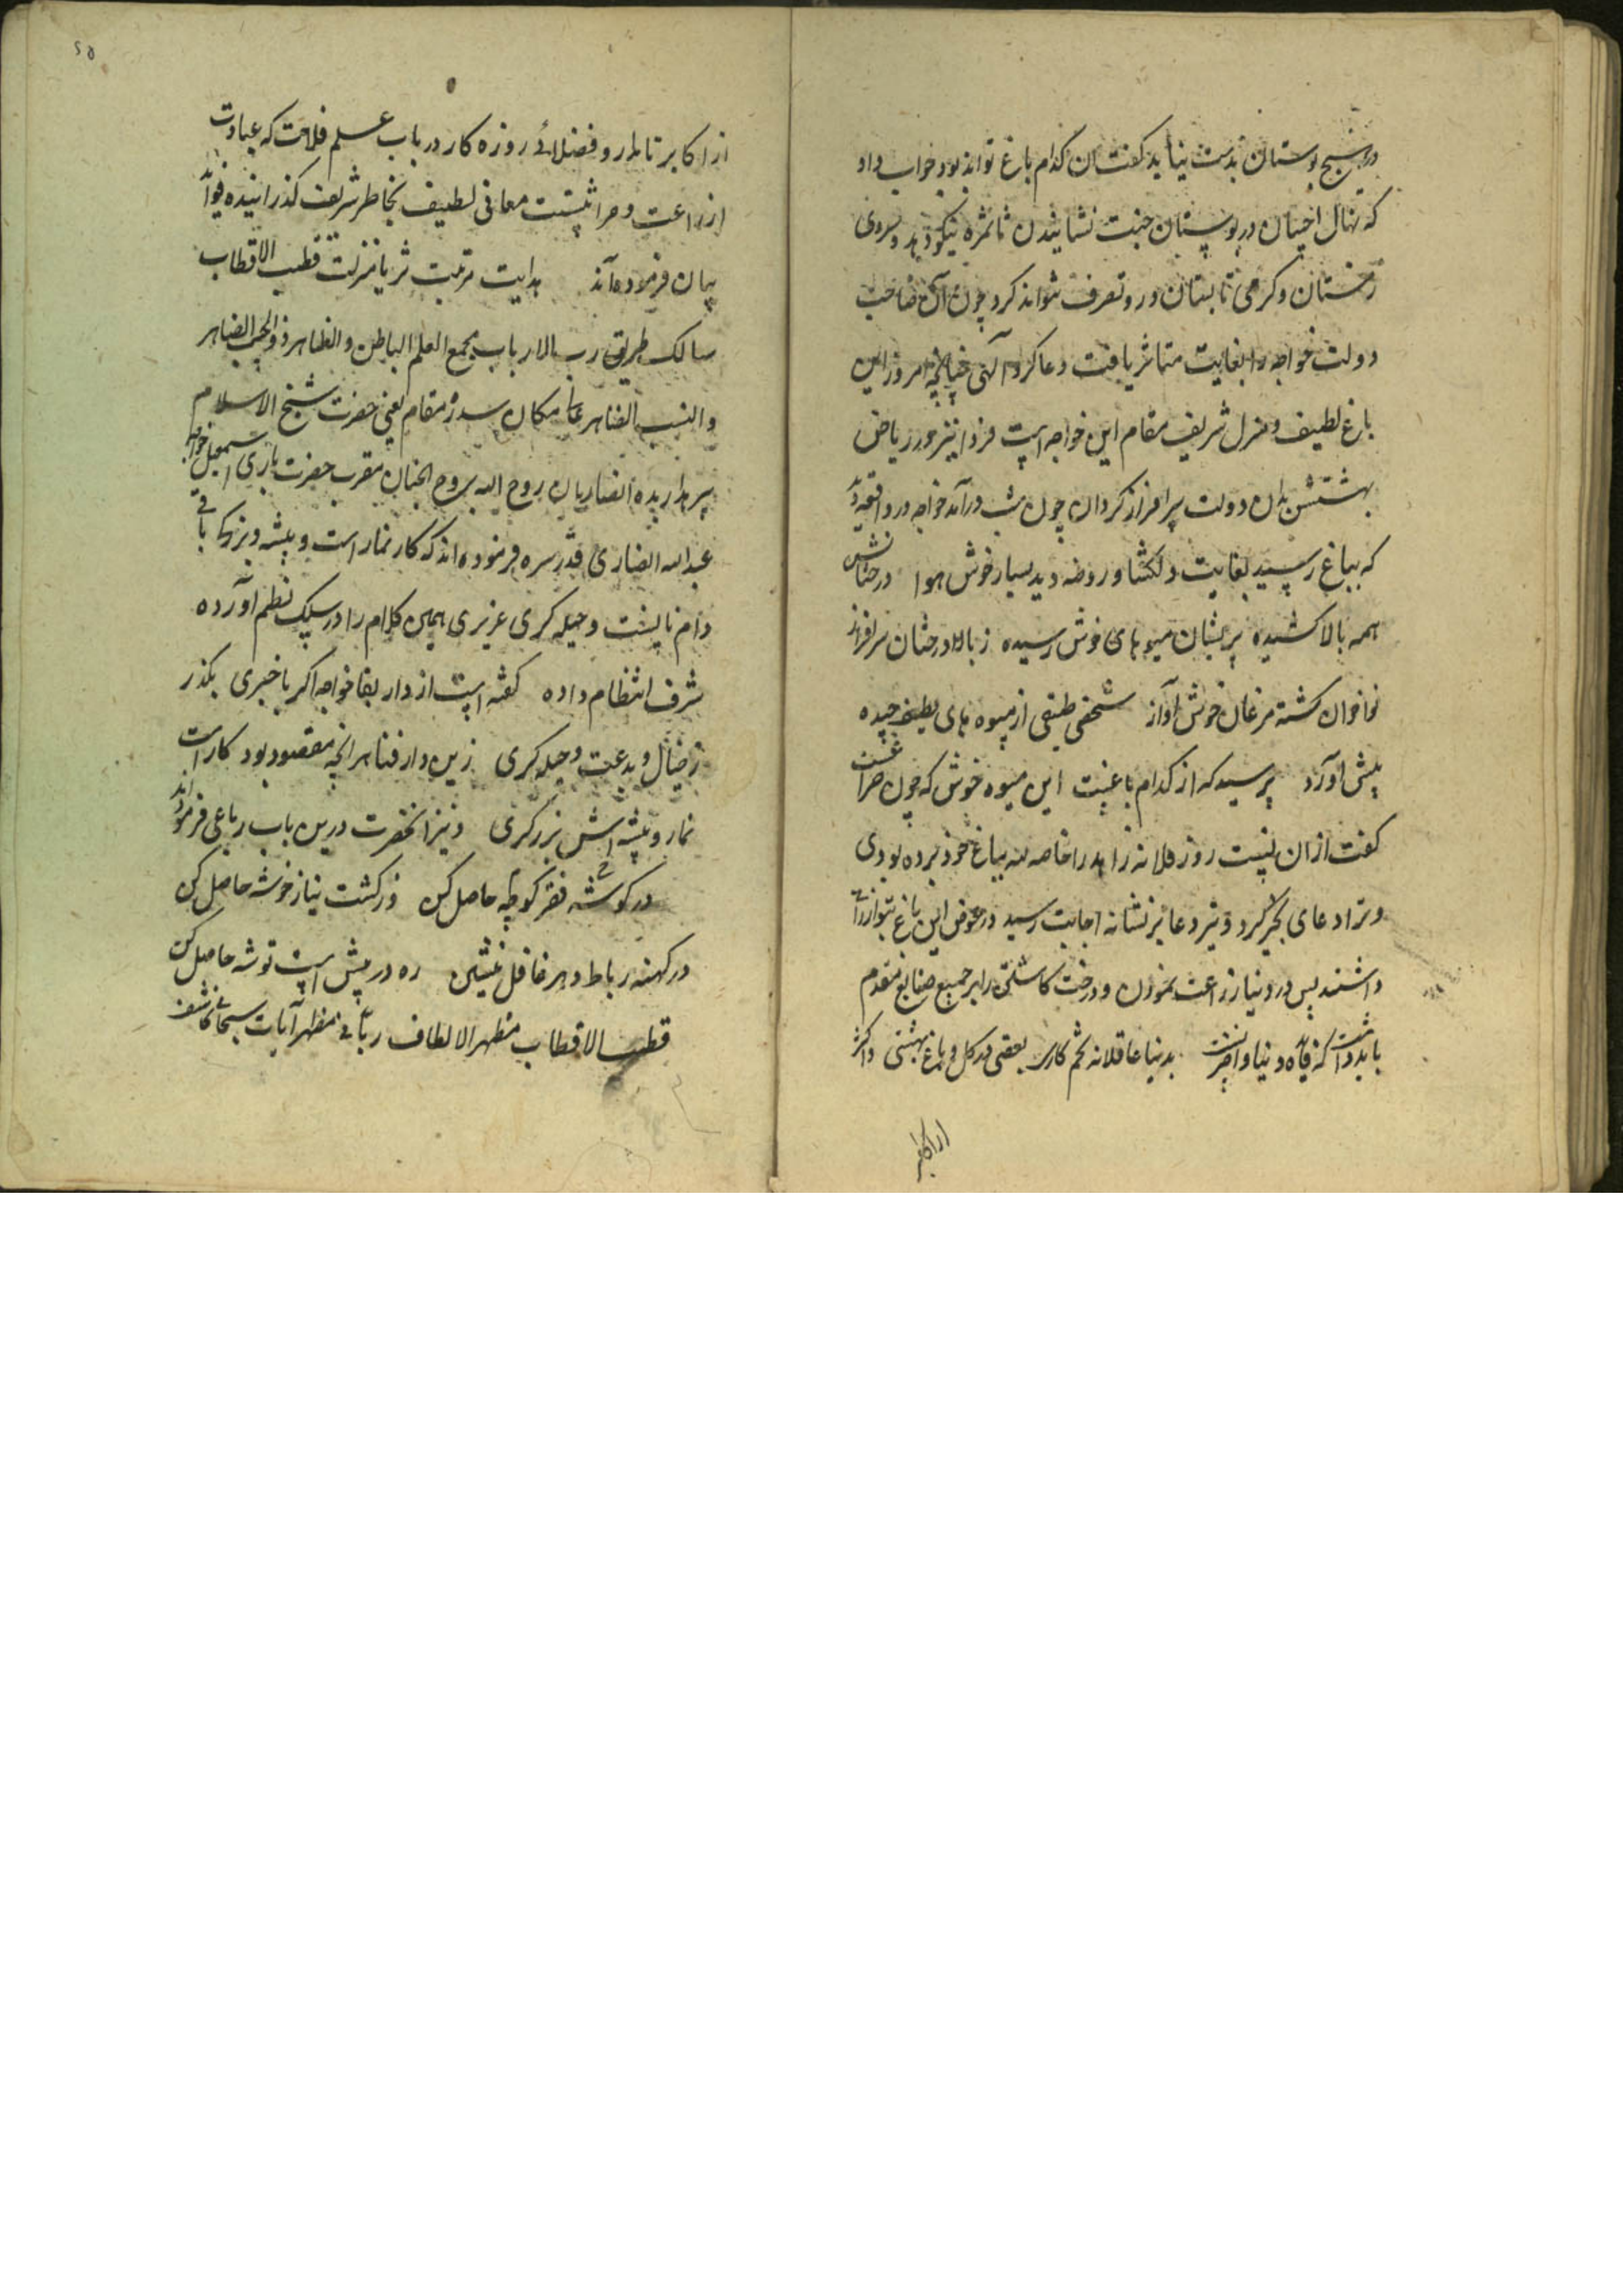 در هیچ بوستان بدست نیاید گفت آن کدام باغ تواند بود جواب داد
که نهال احسان در بوستان جنت نشانیدن تا ثمره نیکو دهد و سردی
زمستان و گرمی تابستان درو تصرف نتواند کرد چون آن صاحب
دولت خواجه را بغایت متاثر یافت دعا کرد آلهی چنانچه امروز این
باغ لطیف و منزل شریف مقام این خواجه است فردا نیز در ریاض
بهشتش بدان دولت سرافراز گردان چون شب درآمد خواجه در واقعه دید
که بباغ رسید بغایت دلکشا و روضه دید بسیار خوش هوا درختانش
همه بالا کشیده بریشان میوهای خوش رسیده ز بالا درختان سرافراز
نواخوان گشته مرغان خوش آواز شخصی طبقی از میوه های لطیف چیده
پیش آورد پرسید که از کدام باغست این میوه خوش که چون
گفت ازان نیست روز فلانه زاهد را خاصة لله بباغ خود برده بودی
و ترا دعای بخیر کرد و تیر دعا بر نشانه اجابت رسید در عوض این باغ بتو ارزانی
داشتند پس در دنیا زراعت نمودن و درخت کاشتن را بر جمیع صنایع مقدم
باید داشت که فایده دنیا و آخرتست بدنیا عاقلانه تخم کارد بعقبی در گل و باغ بهشتی و اکثر
از اکابر
۲۵
از اکابر نامدار و فضلای روزه کار در باب علم فلاحت که عبارت
از زراعت و حراثتست معانی لطیف بخاطر شریف گذرانیده فواید
بیان فرموده‌اند هدایت مرتبت ثریا منزلت قطب الاقطاب
سالک طریق رب الارباب مجمع العلم الباطن و الظاهر ذو الحسب الظاهر
و النسب الظاهر عالی مکان سدره مقام یعنی حضرت شیخ الاسلام
پیر انصاریان روح الله بروح الجنان مقرب حضرت باری اسمعیل خواجه
عبدالله انصاری قدس سره فرموده اند که کار نمار است و پیشه و بزرکا باقی
دام نا پسنت و حیله کری عزیزی همین کلام را در سلک نظم آورده
شرف انتظام داده گفته است از دار بقا خواجه اگر با خبری بگذر
ز خیال و بدعت و حیله کری زین دار فنا هر انچه مقصود بود کار است
نمار و پیشه اش بزرکری و نیز انحضرت درین باب رباعی فرموده اند
در گوشه فقر گوشه حاصل کن وز کشت نیاز خوشه حاصل کن
در کهنه رباط دهر غافل منشین ره در پیش است توشه حاصل کن
قطب الاقطاب مظهر الالطاف ربانی مظهر آیات سبحانی کاشف